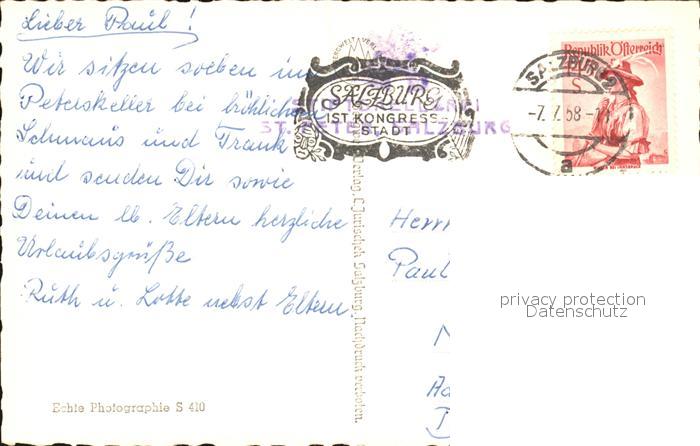 Lieber Paul!
Wir sitzen soeben im
Peterskeller bei fröhlichem
Schmaus und Trank
und senden Dir sowie
Deinen lb. Eltern herzliche
Urlaubsgrüße
Ruth u. Lotte nebst Eltern
Echte Photographie S 410
Verlag C. Jurischek Salzburg, Nachdruck verboten.
SALZBURG
IST KONGRESS-
STADT
ST. PETER SALZBURG
SALZBURG 2
-7.7.58-
a
Republik Österreich
S
Herrn
Paul
privacy protection
Datenschutz